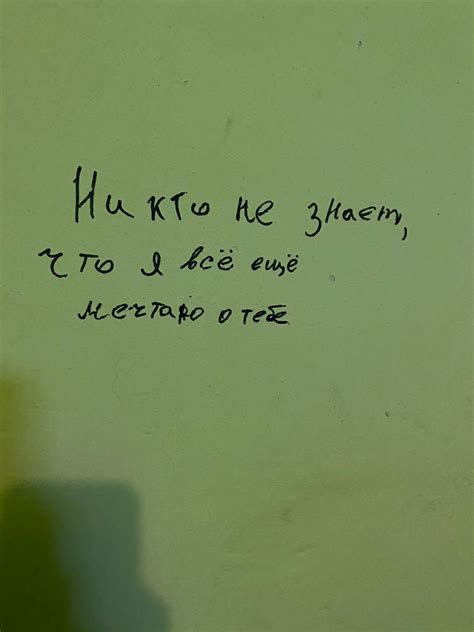 Никто не знает,
что я всё ещё
мечтаю о тебе